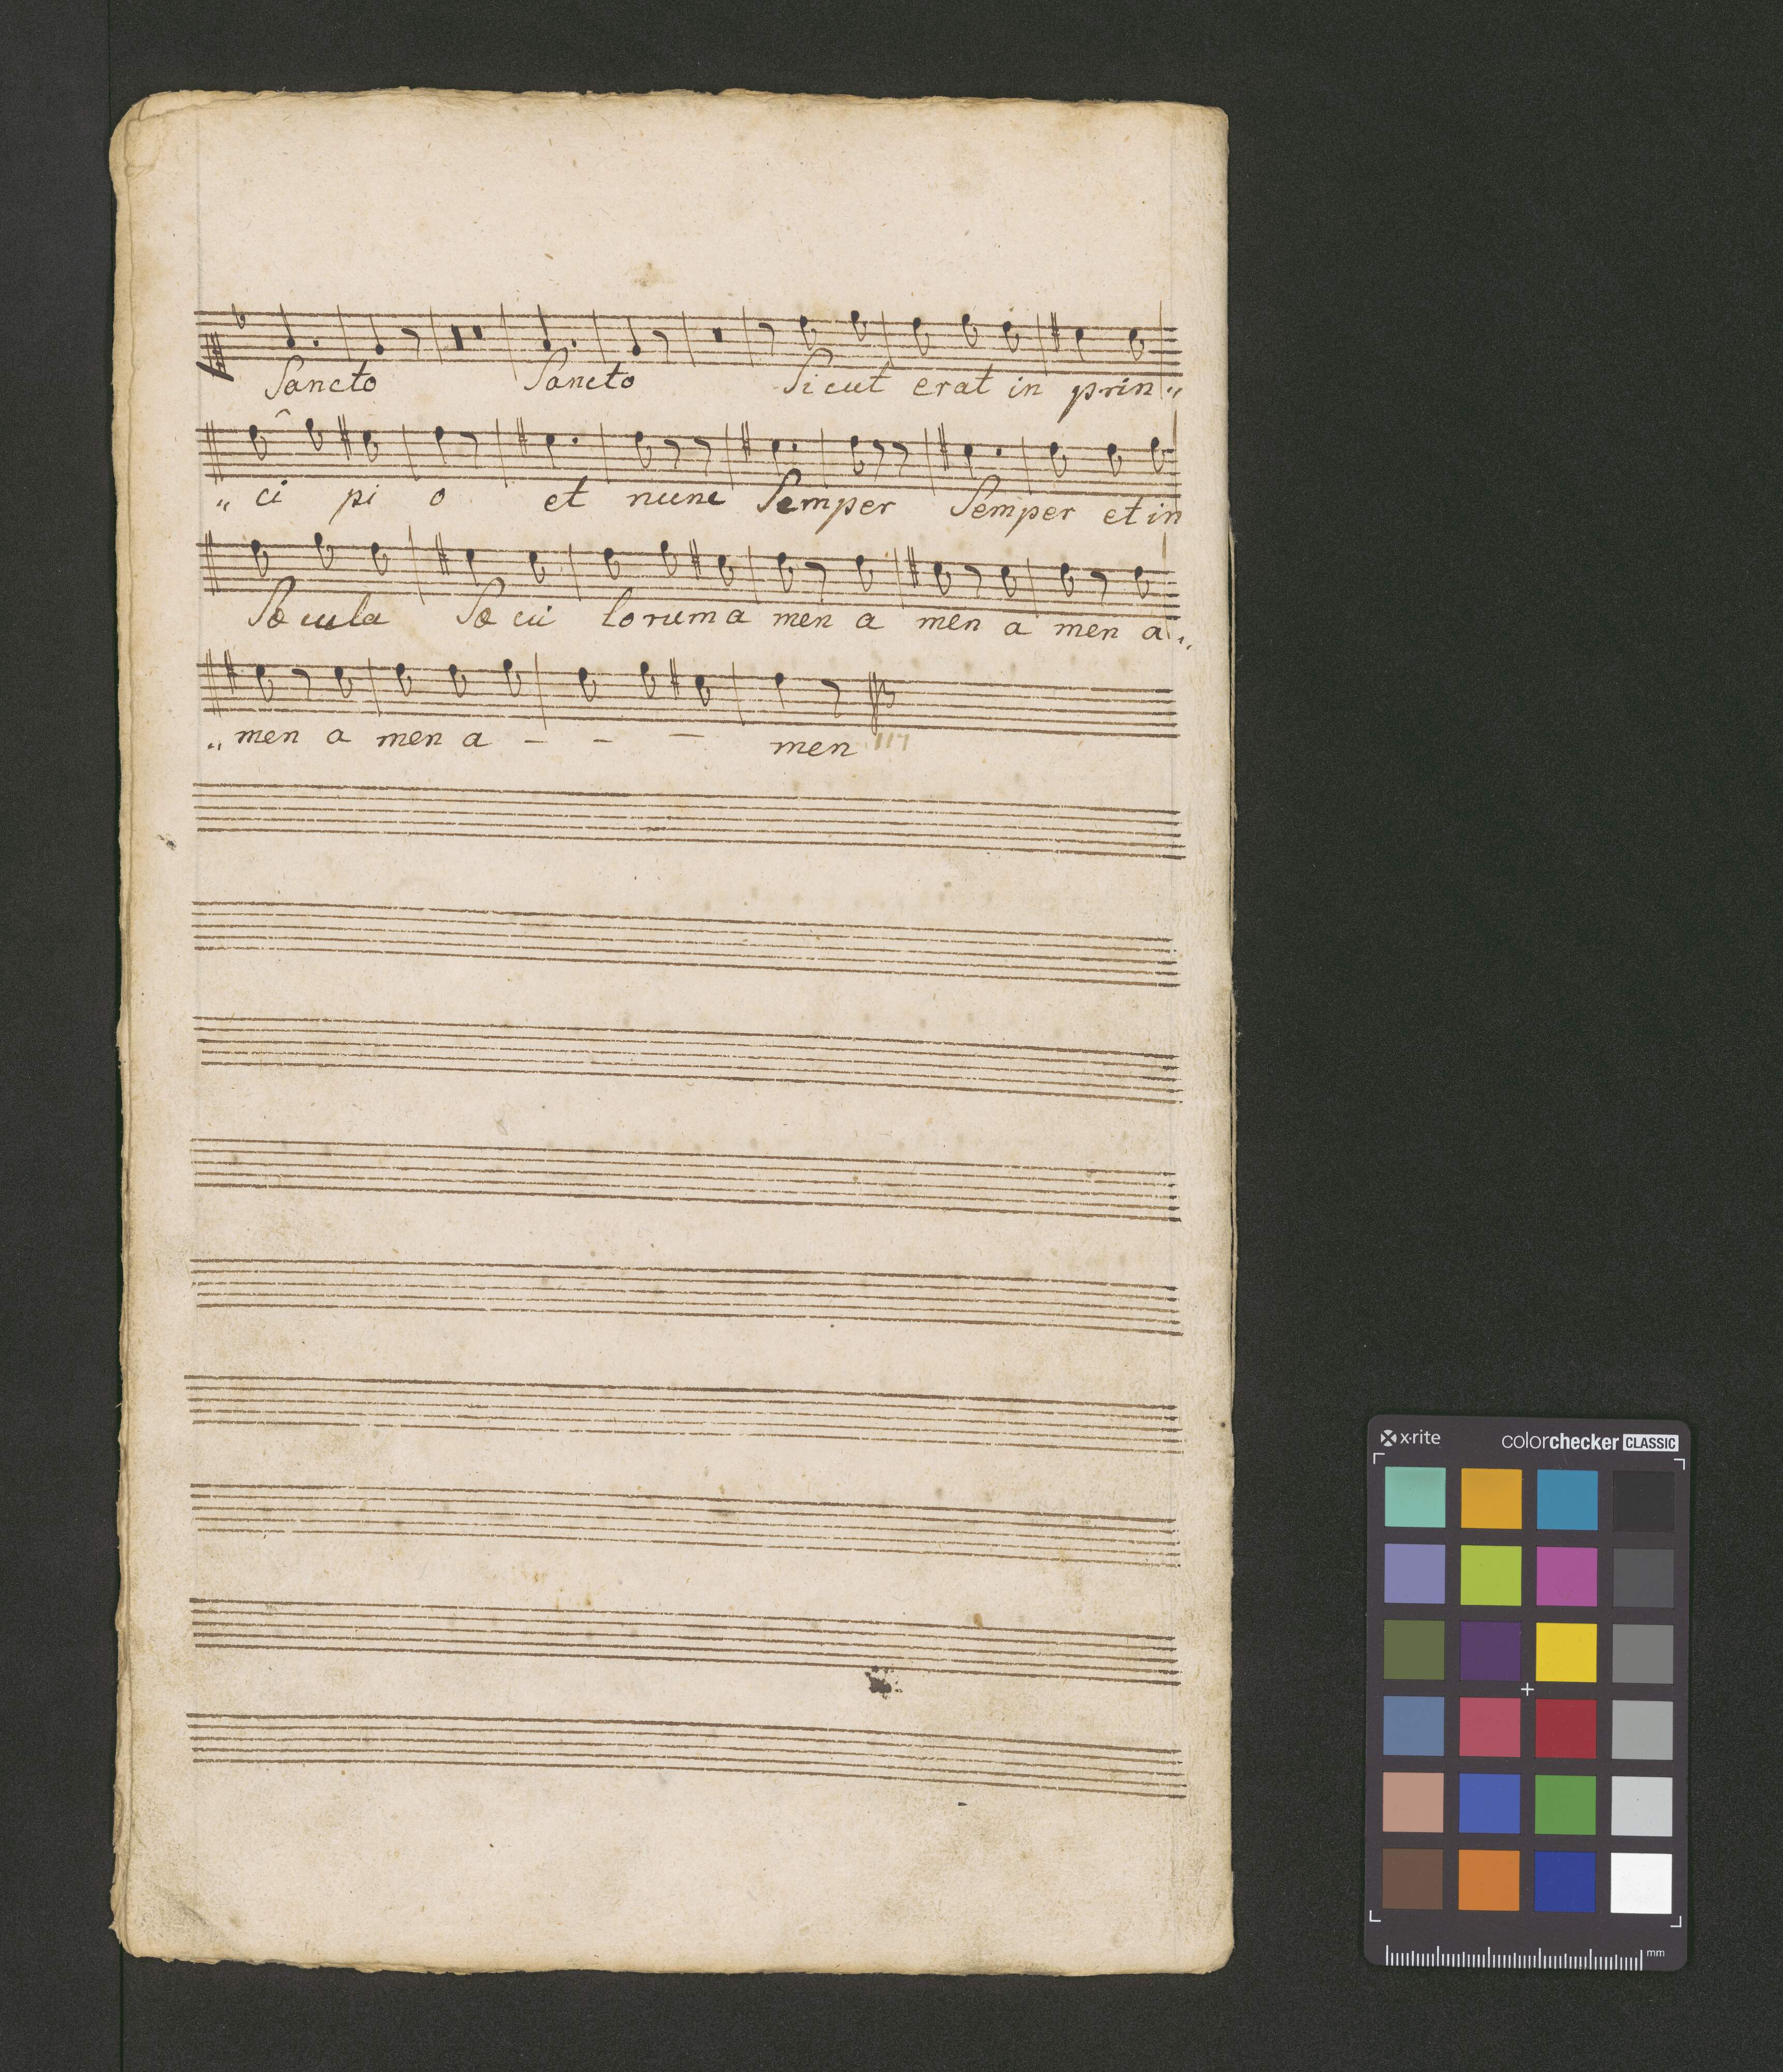 Sancto Sancto Sicut erat in prin„
„ci pi o et nunc Semper Semper et in
Sæ cula Sæ cu lorum a men a men a men a„
„men a men a – – – men 117
x·rite colorchecker CLASSIC
mm